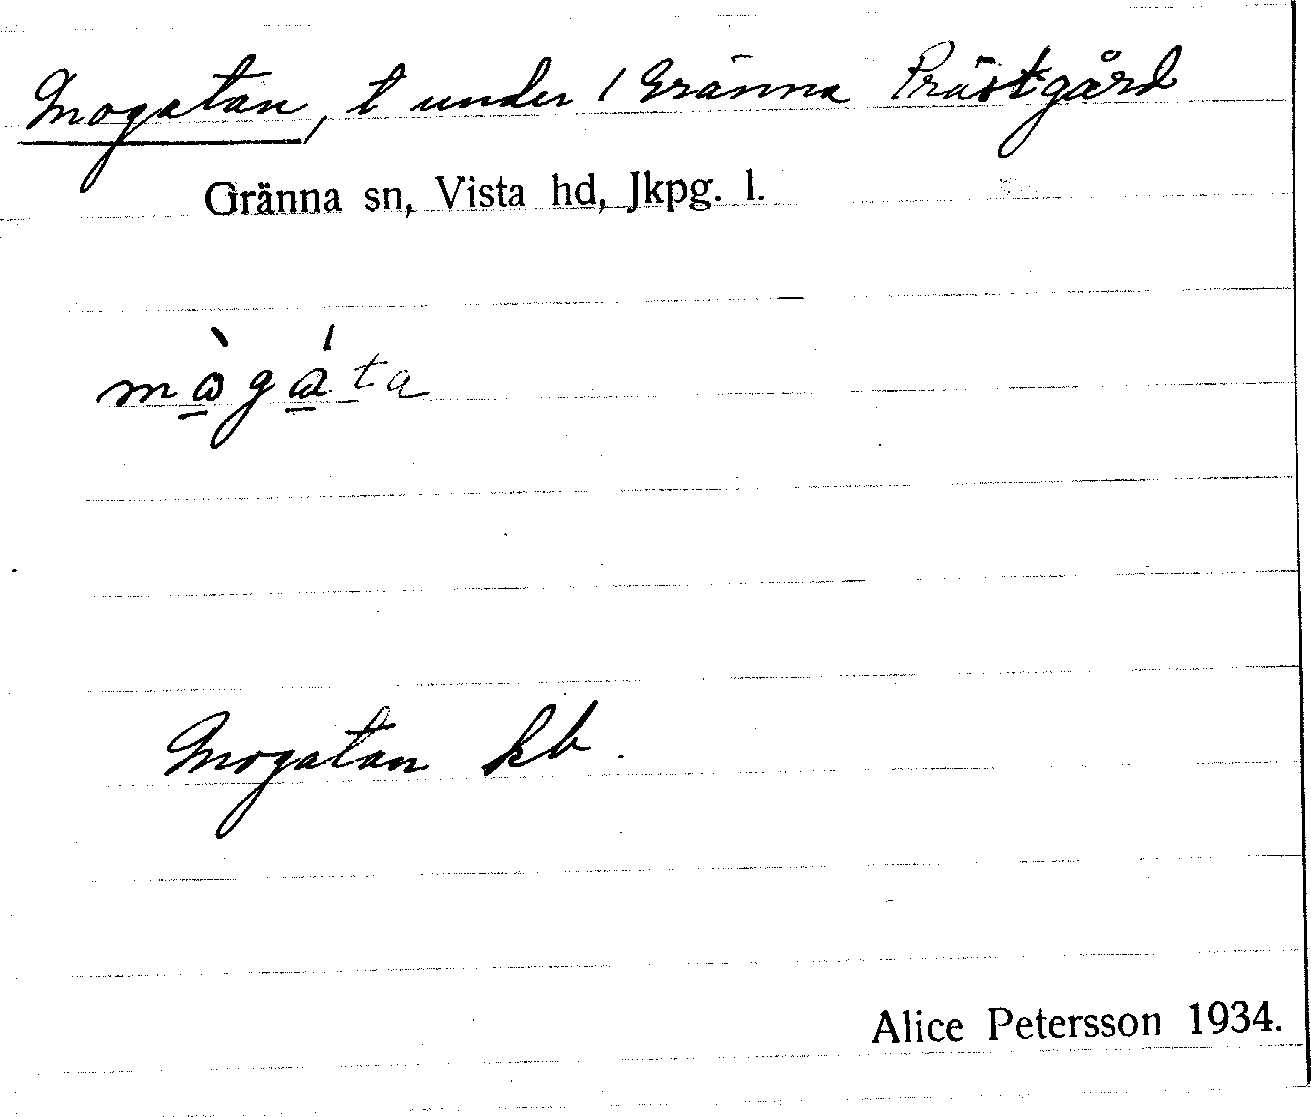 Mogatan, t under 1 Gränna Prästgård
Gränna sn, Vista hd, Jkpg. l.
mògáta
Mogatan kb.
Alice Petersson 1934.